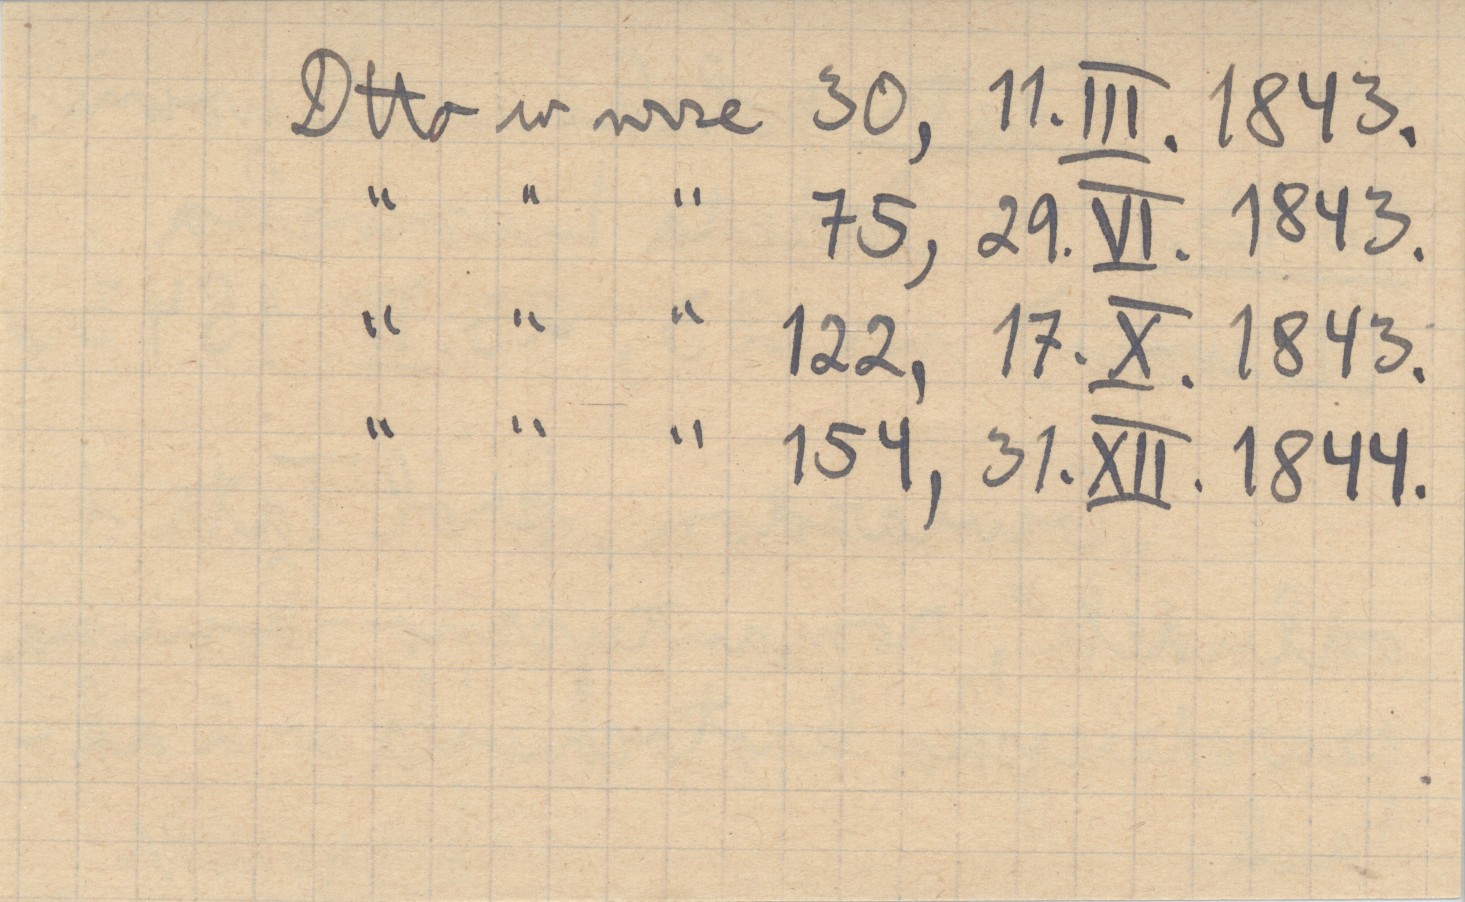 Dtto w nrze 30, 11.III. 1843.
" " " 75, 29.VI. 1843.
" " " 122, 17.X. 1843.
" " " 154, 31.XII. 1844.